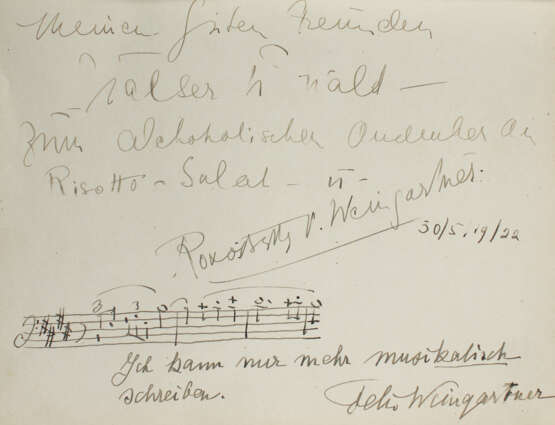 Meinen guten Freunden
Wald –
zum alchoholischen Andenken an
Risotto – Salat – u –
v. Weingartner.
30/5. 19/22
3 3
Ich kann nur mehr musikalisch
schreiben.
Felix Weingartner